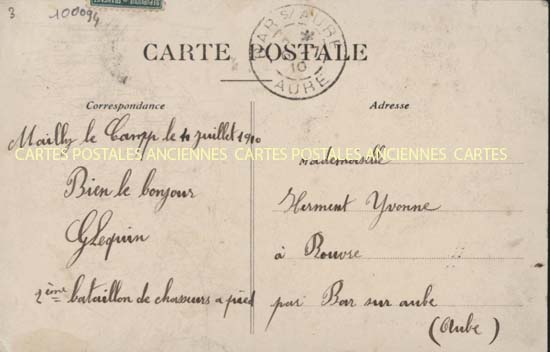 3
100094
CARTE POSTALE
BAR S/AUBE
10
AUBE
Correspondance
Adresse
Mailly le Camp le 4 juillet 1910
CARTES POSTALES ANCIENNES CARTES POSTALES ANCIENNES CARTES
Mademoiselle
Bien le bonjour
Herment Yvonne
GLequin
à Rouvre
2ème bataillon de chasseurs a pied
par Bar sur aube
(Aube)